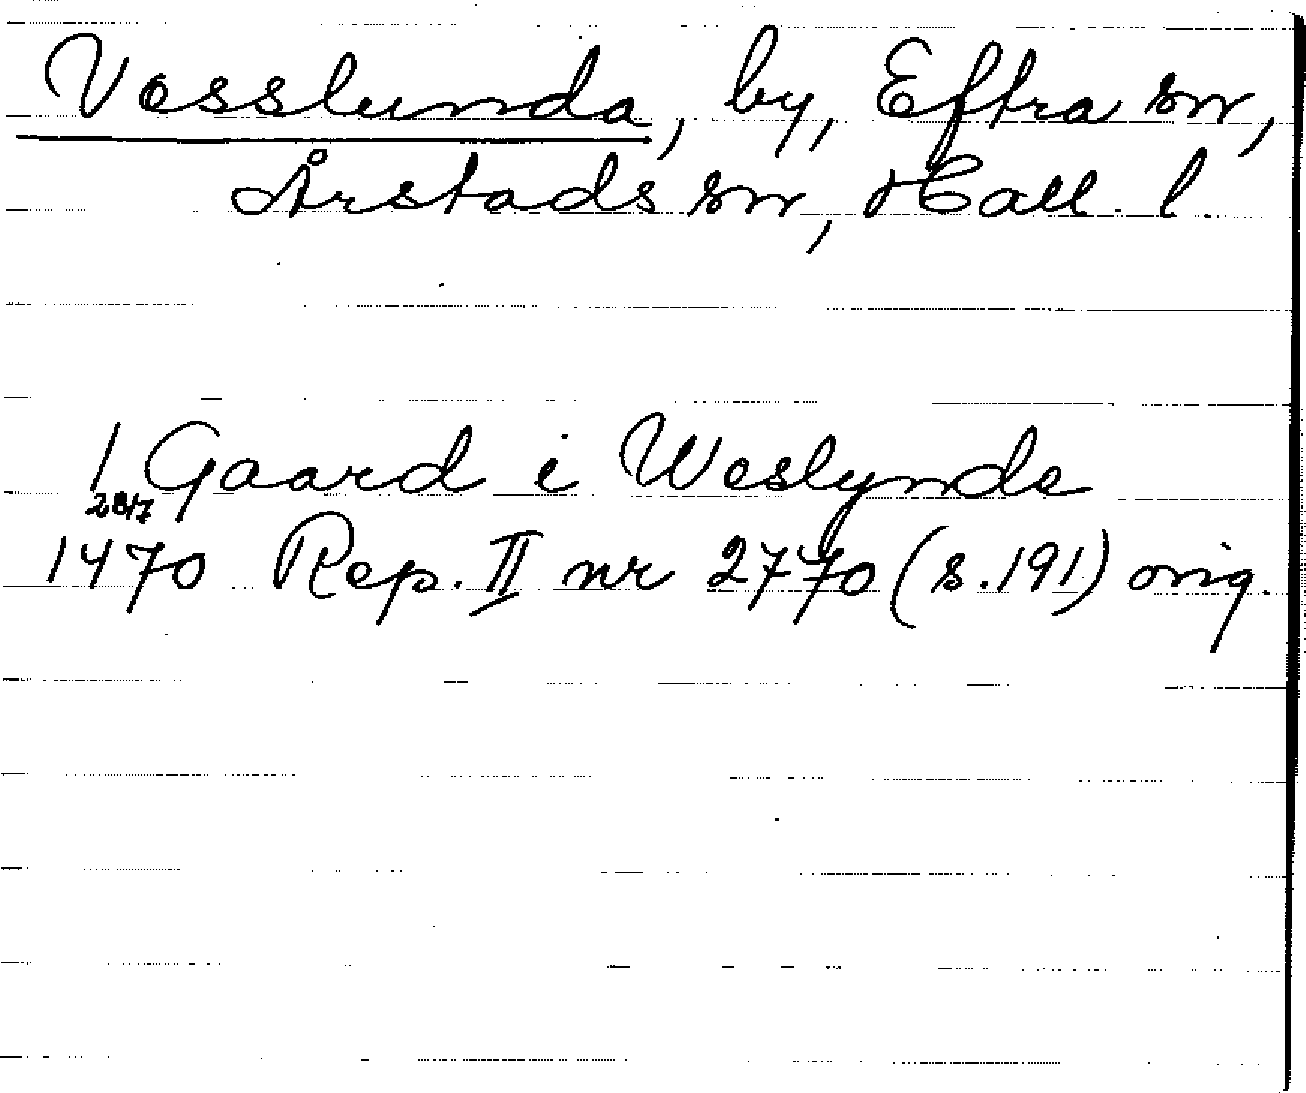 Vesslunda, by, Eftra sn,
Årstads sn, Hall. l.
1 Gaard i Weslynde
28/7
1470 Rep. II nr 2770 (s. 191) orig.